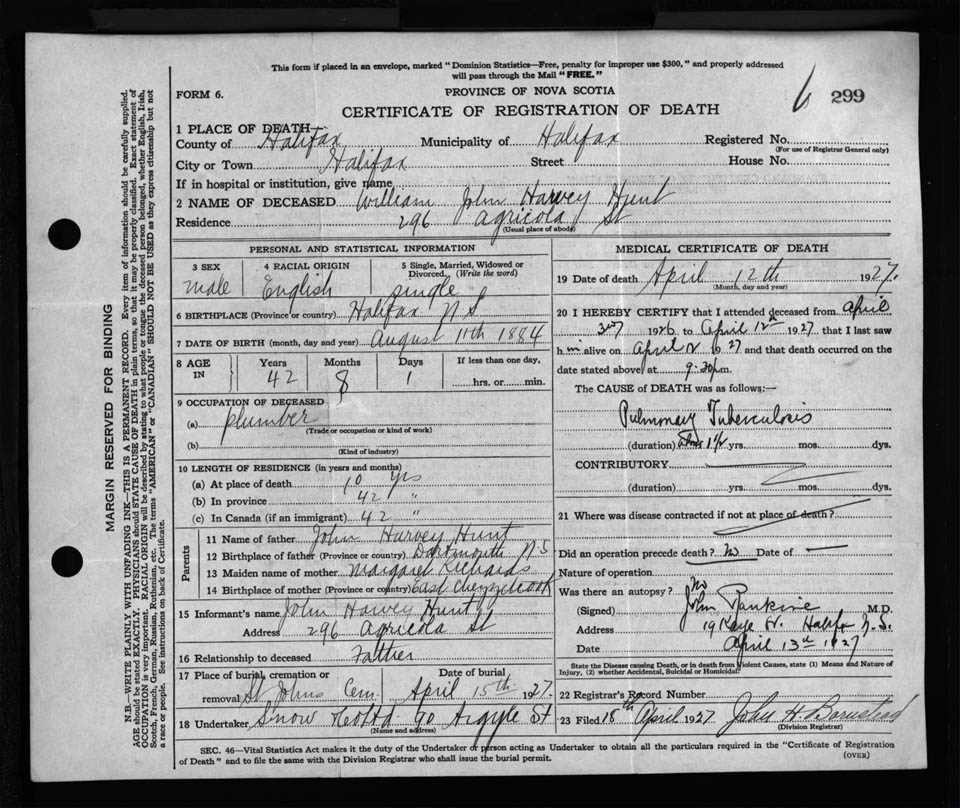 This form if placed in an envelope, marked "Dominion Statistics—Free, penalty for improper use $300," and properly addressed
will pass through the Mail "FREE."
FORM 6.
PROVINCE OF NOVA SCOTIA
6 299
CERTIFICATE OF REGISTRATION OF DEATH
1 PLACE OF DEATH
County of Halifax Municipality of Halifax Registered No.
(For use of Registrar General only)
City or Town Halifax Street House No.
If in hospital or institution, give name
2 NAME OF DECEASED William John Harvey Hunt
Residence 296 Agricola St
(Usual place of abode)
PERSONAL AND STATISTICAL INFORMATION
3 SEX 4 RACIAL ORIGIN 5 Single, Married, Widowed or
Divorced. (Write the word)
male English single
6 BIRTHPLACE (Province or country) Halifax N S
7 DATE OF BIRTH (month, day and year) August 11th 1884
8 AGE IN Years Months Days If less than one day,
42 8 1 hrs. or min.
9 OCCUPATION OF DECEASED
(a) plumber
(Trade or occupation or kind of work)
(b)
(Kind of industry)
10 LENGTH OF RESIDENCE (in years and months)
(a) At place of death 10 yrs
(b) In province 42 "
(c) In Canada (if an immigrant) 42 "
Parents
11 Name of father John Harvey Hunt
12 Birthplace of father (Province or country) Dartmouth N S
13 Maiden name of mother Margaret Richards
14 Birthplace of mother (Province or country) East Chezzetcook
15 Informant's name John Harvey Hunt
Address 296 Agricola St
16 Relationship to deceased Father
17 Place of burial, cremation or Date of burial
removal St Johns Cem. April 15th 1927.
18 Undertaker Snow & Co Ltd 90 Argyle St
(Name and address)
MEDICAL CERTIFICATE OF DEATH
19 Date of death April 12th 1927.
(Month, day and year)
20 I HEREBY CERTIFY that I attended deceased from April
3rd 1926 to April 12th 1927, that I last saw
him alive on April 1927 and that death occurred on the
date stated above, at 9.30 p.m.
The CAUSE of DEATH was as follows:—
Pulmonary Tuberculosis
(duration) 1½ yrs. mos. dys.
CONTRIBUTORY
(duration) yrs. mos. dys.
21 Where was disease contracted if not at place of death?
Did an operation precede death? No Date of —
Nature of operation
Was there an autopsy? No
(Signed) John Rankine M.D.
Address 19 Kaye St. Halifax N.S.
Date April 13th 1927
State the Disease causing Death, or in death from Violent Causes, state (1) Means and Nature of
Injury, (2) whether Accidental, Suicidal or Homicidal.
22 Registrar's Record Number
23 Filed 18th April 1927 John H Barnstead
(Division Registrar)
SEC. 46—Vital Statistics Act makes it the duty of the Undertaker or person acting as Undertaker to obtain all the particulars required in the "Certificate of Registration
of Death" and to file the same with the Division Registrar who shall issue the burial permit.
(OVER)
MARGIN RESERVED FOR BINDING
N.B.—WRITE PLAINLY WITH UNFADING INK—THIS IS A PERMANENT RECORD. Every item of information should be carefully supplied.
AGE should be stated EXACTLY. PHYSICIANS should STATE CAUSE OF DEATH in plain terms, so that it may be properly classified. Exact statement of
OCCUPATION is very important. RACIAL ORIGIN will be described by stating to what people or tongue the deceased person belonged, whether English, Irish,
Scotch, French, German, Russian, Ruthenian, etc. The terms "AMERICAN" or "CANADIAN" SHOULD NOT BE USED as they express citizenship but not
a race or people. See instructions on back of Certificate.